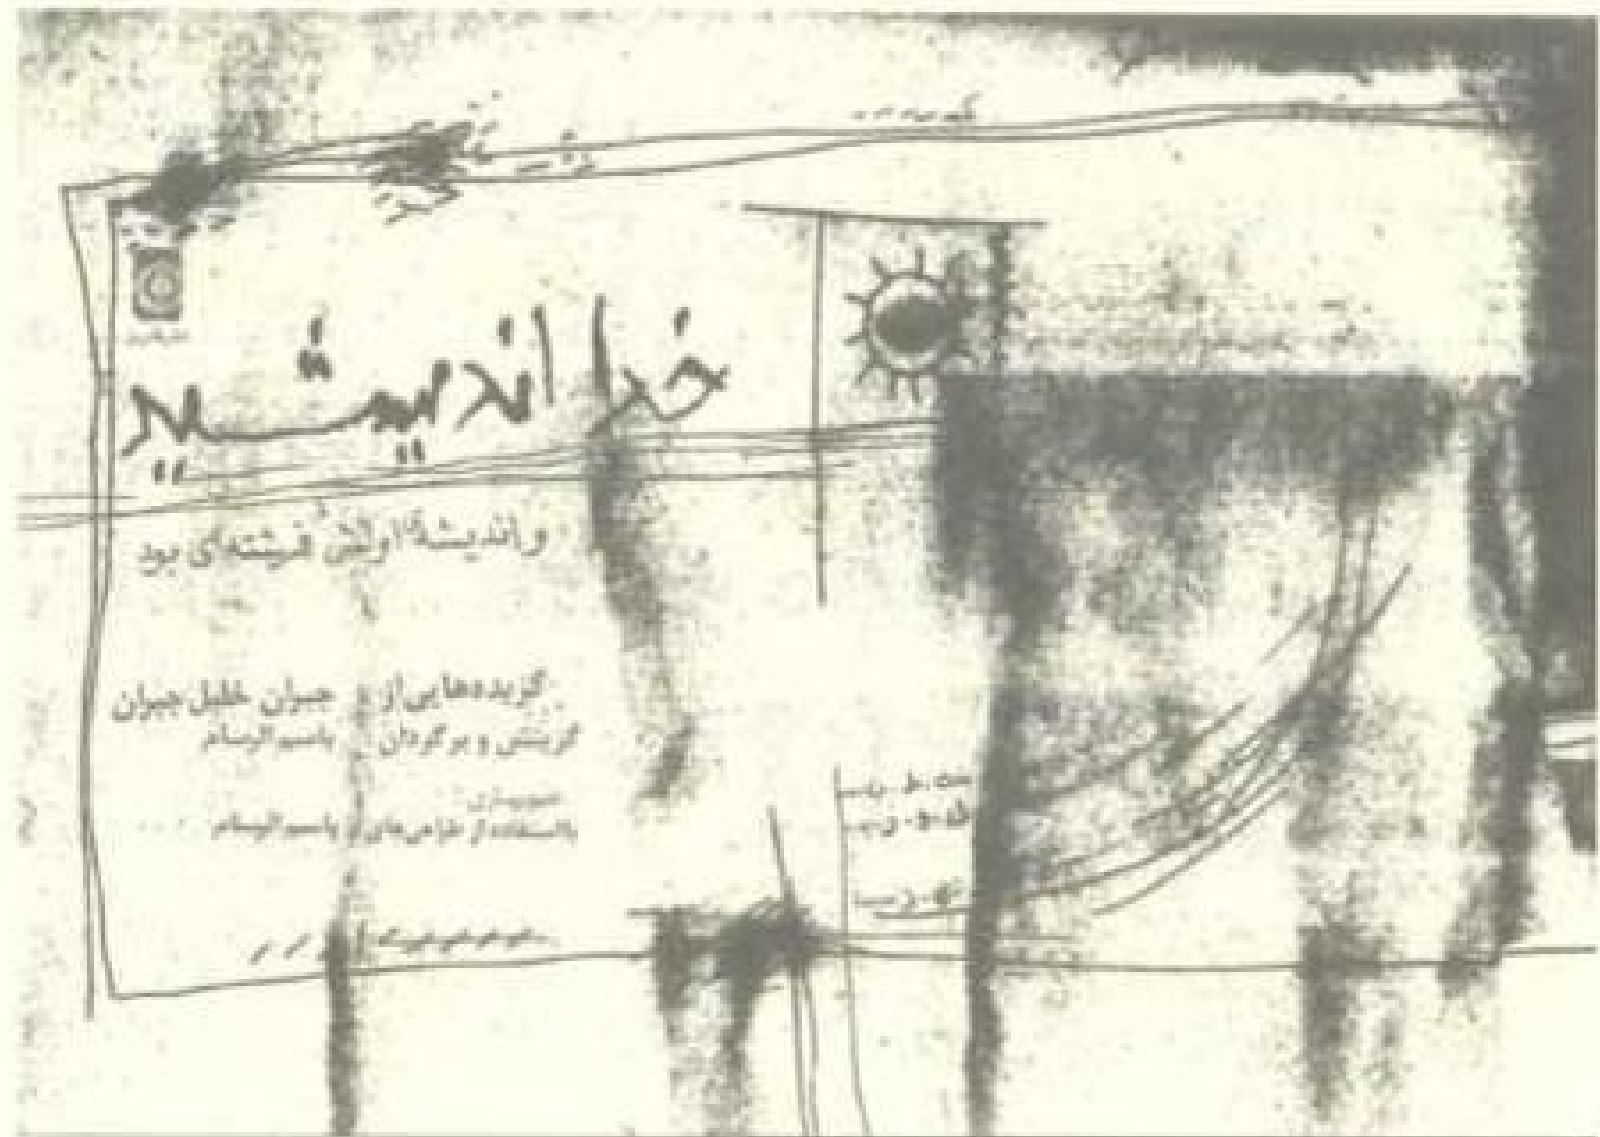 خدا اندیشید
و اندیشهٔ اولش فرشته‌ای بود
گزیده‌هایی از جبران خلیل جبران
گزینش و برگردان باسم الرسام
تصویرسازی
با استفاده از طراحی‌های باسم الرسام